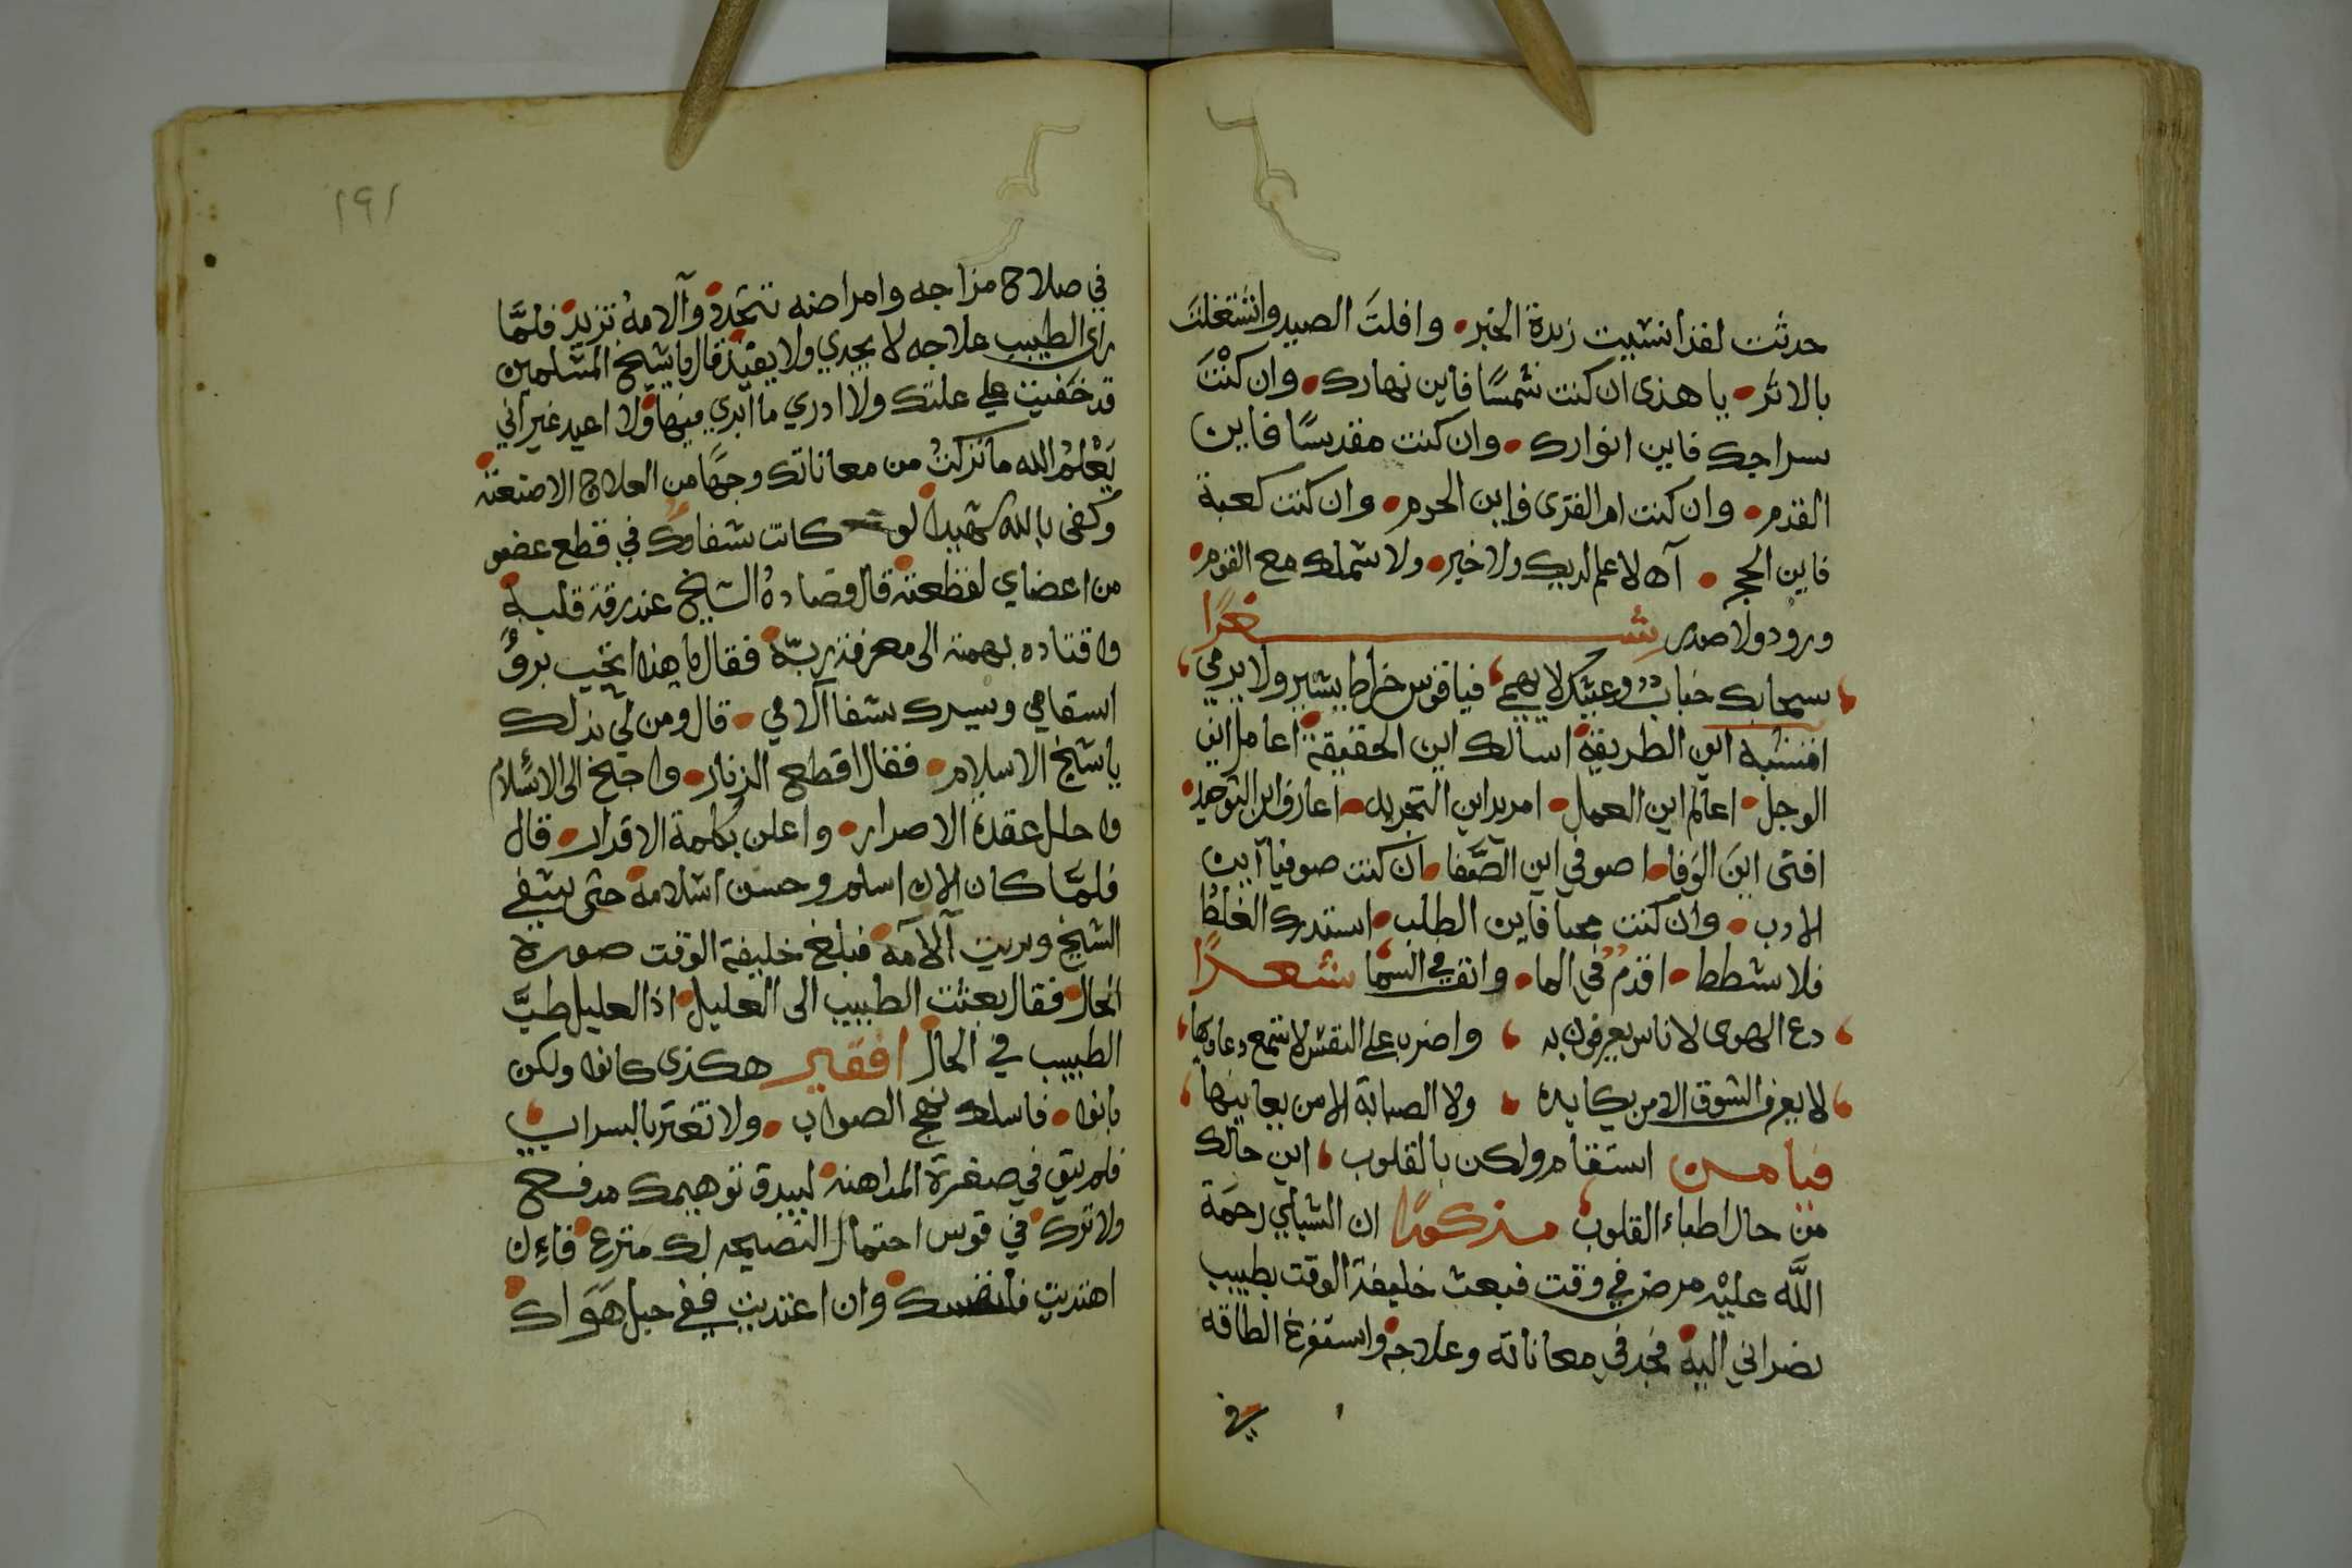 حدثت لقد انسيت زبدة الخبر • وافلتَ الصيد واشتغلتَ
بالاثر • يا هذى ان كنت شمسًا فاين نهارك • وان كنْتَ
سراجك فاين انوارك • وان كنت مقدسًا فاين
القدم • وان كنت ام القرى فاين الحرم • وان كنت كعبة
فاين الحجر • آه لا علم لديك ولا خير • ولا شملك مع القوم •
ورود ولا صدر شعرًا
سحابك خباب وغيثك لا يهمي فيا قوس خراط يشير ولا يرمي
افتشبه اين الطريقة اسالك اين الحقيقة اعامل اين
الوجل • اعالم اين العمل • امريد اين التجريد • اعارف اين التوحيد •
افتى اينَ الوَفا • اصوفي اين الصَّفا • ان كنت صوفيا اين
الادب • وان كنت محبا فاين الطلب • استدرك الغلطْ
فلا شطط • اقدمْ في الما • وانق في السما شعرًا
دع الهوى لاناس يعرفون به واضرب على النفس لا تسمع دعاويها
لا يعرف الشوق الا من يكابده ولا الصبابة الا من يعانيها
فيا من استقام ولكن بالقلوب اين حالك
من حال اطباء القلوب مذكورًا ان الشبلي رحمَة
اللَّه عليْه مرض في وقت فبعث خليفة الوقت بطبيب
نصراني اليه فجد في معاناته وعلاجه واستفرغ الطاقه
في
١٩١
في صلاح مزاجه وامراضه تتجدد وآلامهُ تزيد فلمَّا
راى الطبيب علاجه لا يجدي ولا يفيد قال يا شيخ المسلمين
قد خفيت علي علتك ولا ادري ما ابدي فيها ولا اعيد غير اني
يَعْلمُ الله ما تركتُ من معاناتك وجهًا من العلاج الا صنعته
وكفى بالله شهيدا لو كانت شفاوك في قطع عضو
من اعضاي لقطعته قال فصادهُ الشيخ عند رقة قلبه
واقتاده بهمته الى معرفة ربّه فقال يا هذا اتحب بروُ
اسقامي وسيرك شفا آلامي • قال ومن لي بذلك
يا شيخ الاسلام • فقال اقطع الزنار • واجنح الى الاسْلام
واحلل عقدة الاصرار • واعلن بكلمة الاقرار • قال
فلمَّا كان الان اسلم وحسن اسلامه حتى شفي
الشيخ وبريت آلامه فبلغ خليفة الوقت صورة
الحال فقال بعثت الطبيب الى العليل • اذا العليل طبَّ
الطبيب في الحال افقير هكذى كانوا ولكن
بانوا • فاسلك نهج الصواب • ولا تغتر بالسراب
فلم يبق في صغرة المداهنه لبيدق توهيمك مدفع
ولا ترك في قوس احتمال النصيحه لك منزع فاءن
اهتديت فلنفسك وان اعتديت ففي حبل هَوَاك